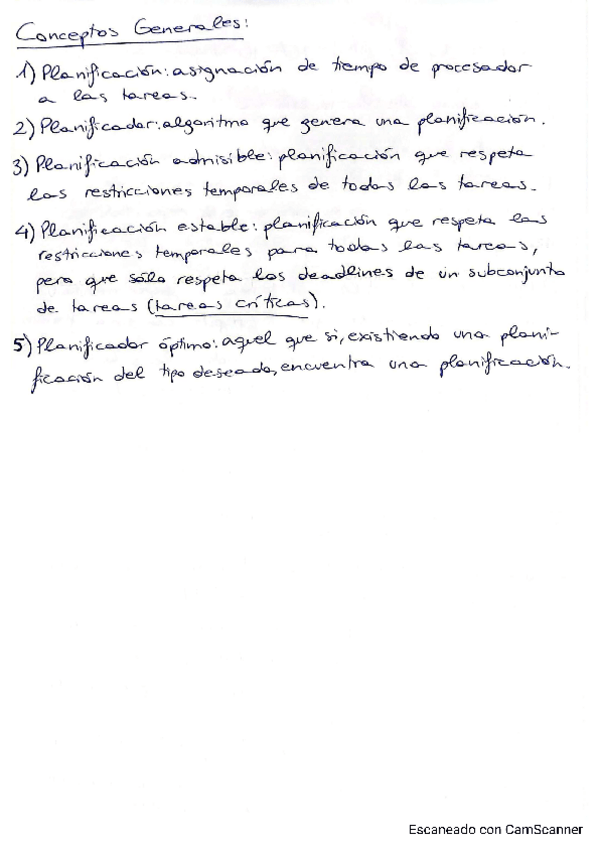 Conceptos Generales:
1) Planificación: asignación de tiempo de procesador
a las tareas.
2) Planificador: algoritmo que genera una planificación.
3) Planificación admisible: planificación que respeta
las restricciones temporales de todas las tareas.
4) Planificación estable: planificación que respeta las
restricciones temporales para todas las tareas,
pero que sólo respeta los deadlines de un subconjunto
de tareas (tareas críticas).
5) Planificador óptimo: aquel que si, existiendo una plani-
ficación del tipo deseado, encuentra una planificación.
Escaneado con CamScanner